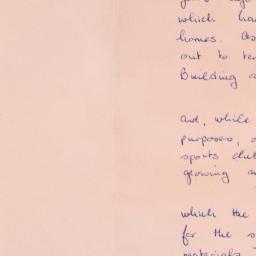 which ha
homes.
out to te
Building

and, while
purposes,
sports club
growing

which the
for the s
materials